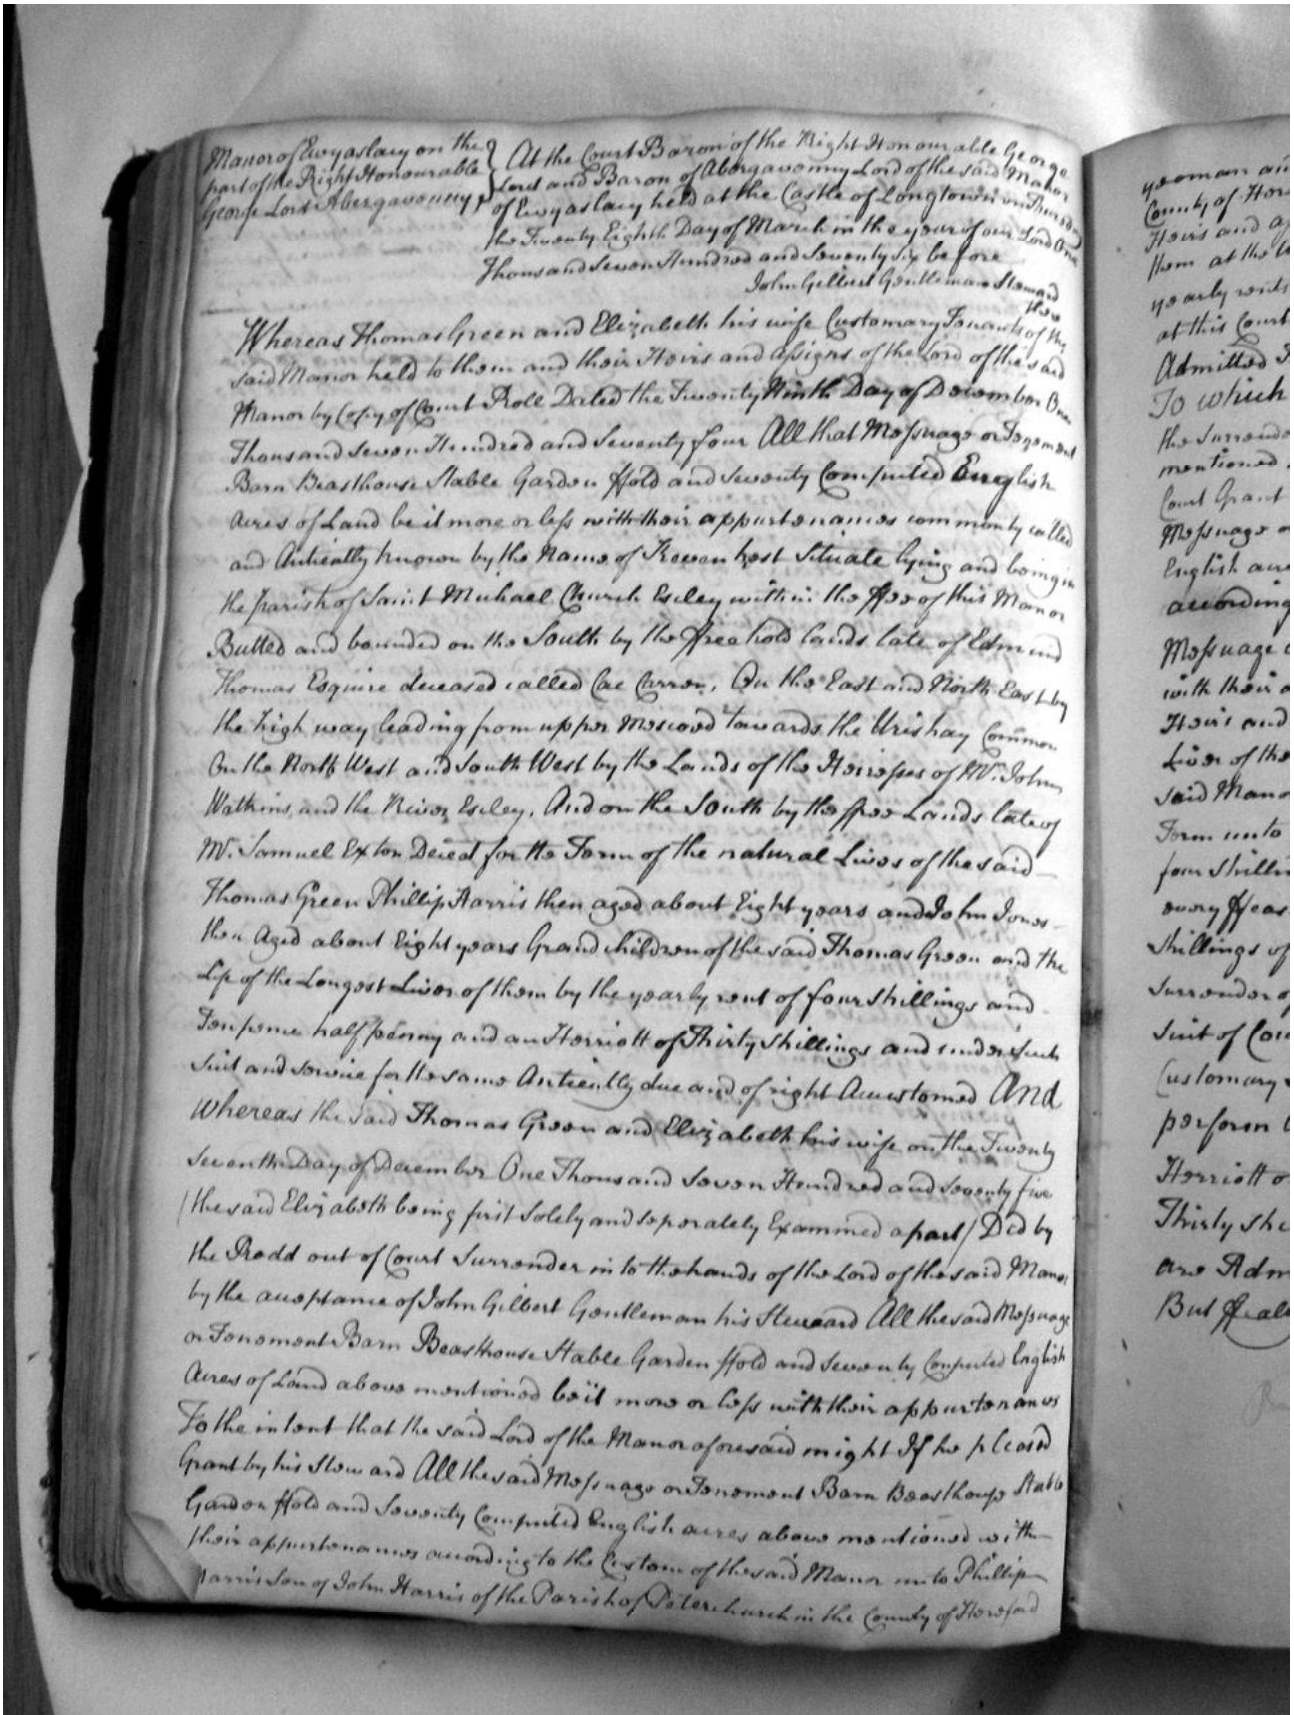 Manor of Ewyaslacy on the
part of the Right Honourable
George Lord Abergavenny
At the Court Baron of the Right Honourable George
Lord and Baron of Abergavenny Lord of the said Manor
of Ewyaslacy held at the Castle of Longtown on Thursday
the Twenty Eighth Day of March in the year of our Lord One
Thousand Seven Hundred and Seventy Six before
John Gilbert Gentleman Steward
there
Whereas Thomas Green and Elizabeth his wife Customary Tenants of the
said Manor held to them and their Heirs and assigns of the Lord of the said
Manor by Copy of Court Roll Dated the Twenty Ninth Day of December One
Thousand seven Hundred and Seventy four All that Messuage or Tenement
Barn Beasthouse Stable Garden ffold and seventy Computed English
acres of Land be it more or less with their appurtenances commonly called
and Antiently known by the Name of Situate lying and being in
the parish of Saint Michael Church Escley within the ffee of this Manor
Butted and bounded on the South by the ffreehold lands late of Edmund
Thomas Esquire deceased called Cae Carrou, On the East and North East by
the high way leading from upper towards the Urishay Common
On the North West and South West by the Lands of the Heiresses of Mr. John
Watkins, and the River Escley, And on the South by the ffree Lands late of
Mr. Samuel Exton Deced for the Term of the natural Lives of the said
Thomas Green Phillip Harris then aged about Eight years and John Jones
then Aged about Eight years Grand children of the said Thomas Green and the
Life of the Longest Liver of them by the yearly rent of four shillings and
Tenpence half penny and an Herriott of Thirty shillings and under such
suit and service for the same Antiently due and of right Accustomed And
Whereas the said Thomas Green and Elizabeth his wife on the Twenty
seventh Day of December One Thousand Seven Hundred and Seventy five
(the said Elizabeth being first Solely and seperately Examined apart) Did by
the Rodd out of Court Surrender into the hands of the Lord of the said Manor
by the acceptance of John Gilbert Gentleman his Steward All the said Messuage
or Tenement Barn Beasthouse Stable Garden ffold and seventy Computed English
Acres of Land above mentioned be it more or less with their appurtenances
To the intent that the said Lord of the Manor aforesaid might If he pleased
Grant by his Steward All the said Messuage or Tenement Barn Beasthouse Stable
Garden ffold and Seventy Computed English acres above mentioned with
their appurtenances according to the Custom of the said Manor unto Phillip
Harris Son of John Harris of the Parish of Peterchurch in the County of Hereford
yeoman
County of
Heirs and
them at the
yearly
at this Court
Admitted
To which
the
mentioned
Court Grant
Messuage
English
according
Messuage
with their
Heirs and
Liver of the
said
Term unto
four
every
shillings
Surrender
suit of
Customary
perform
Herriott
Thirty
are
But